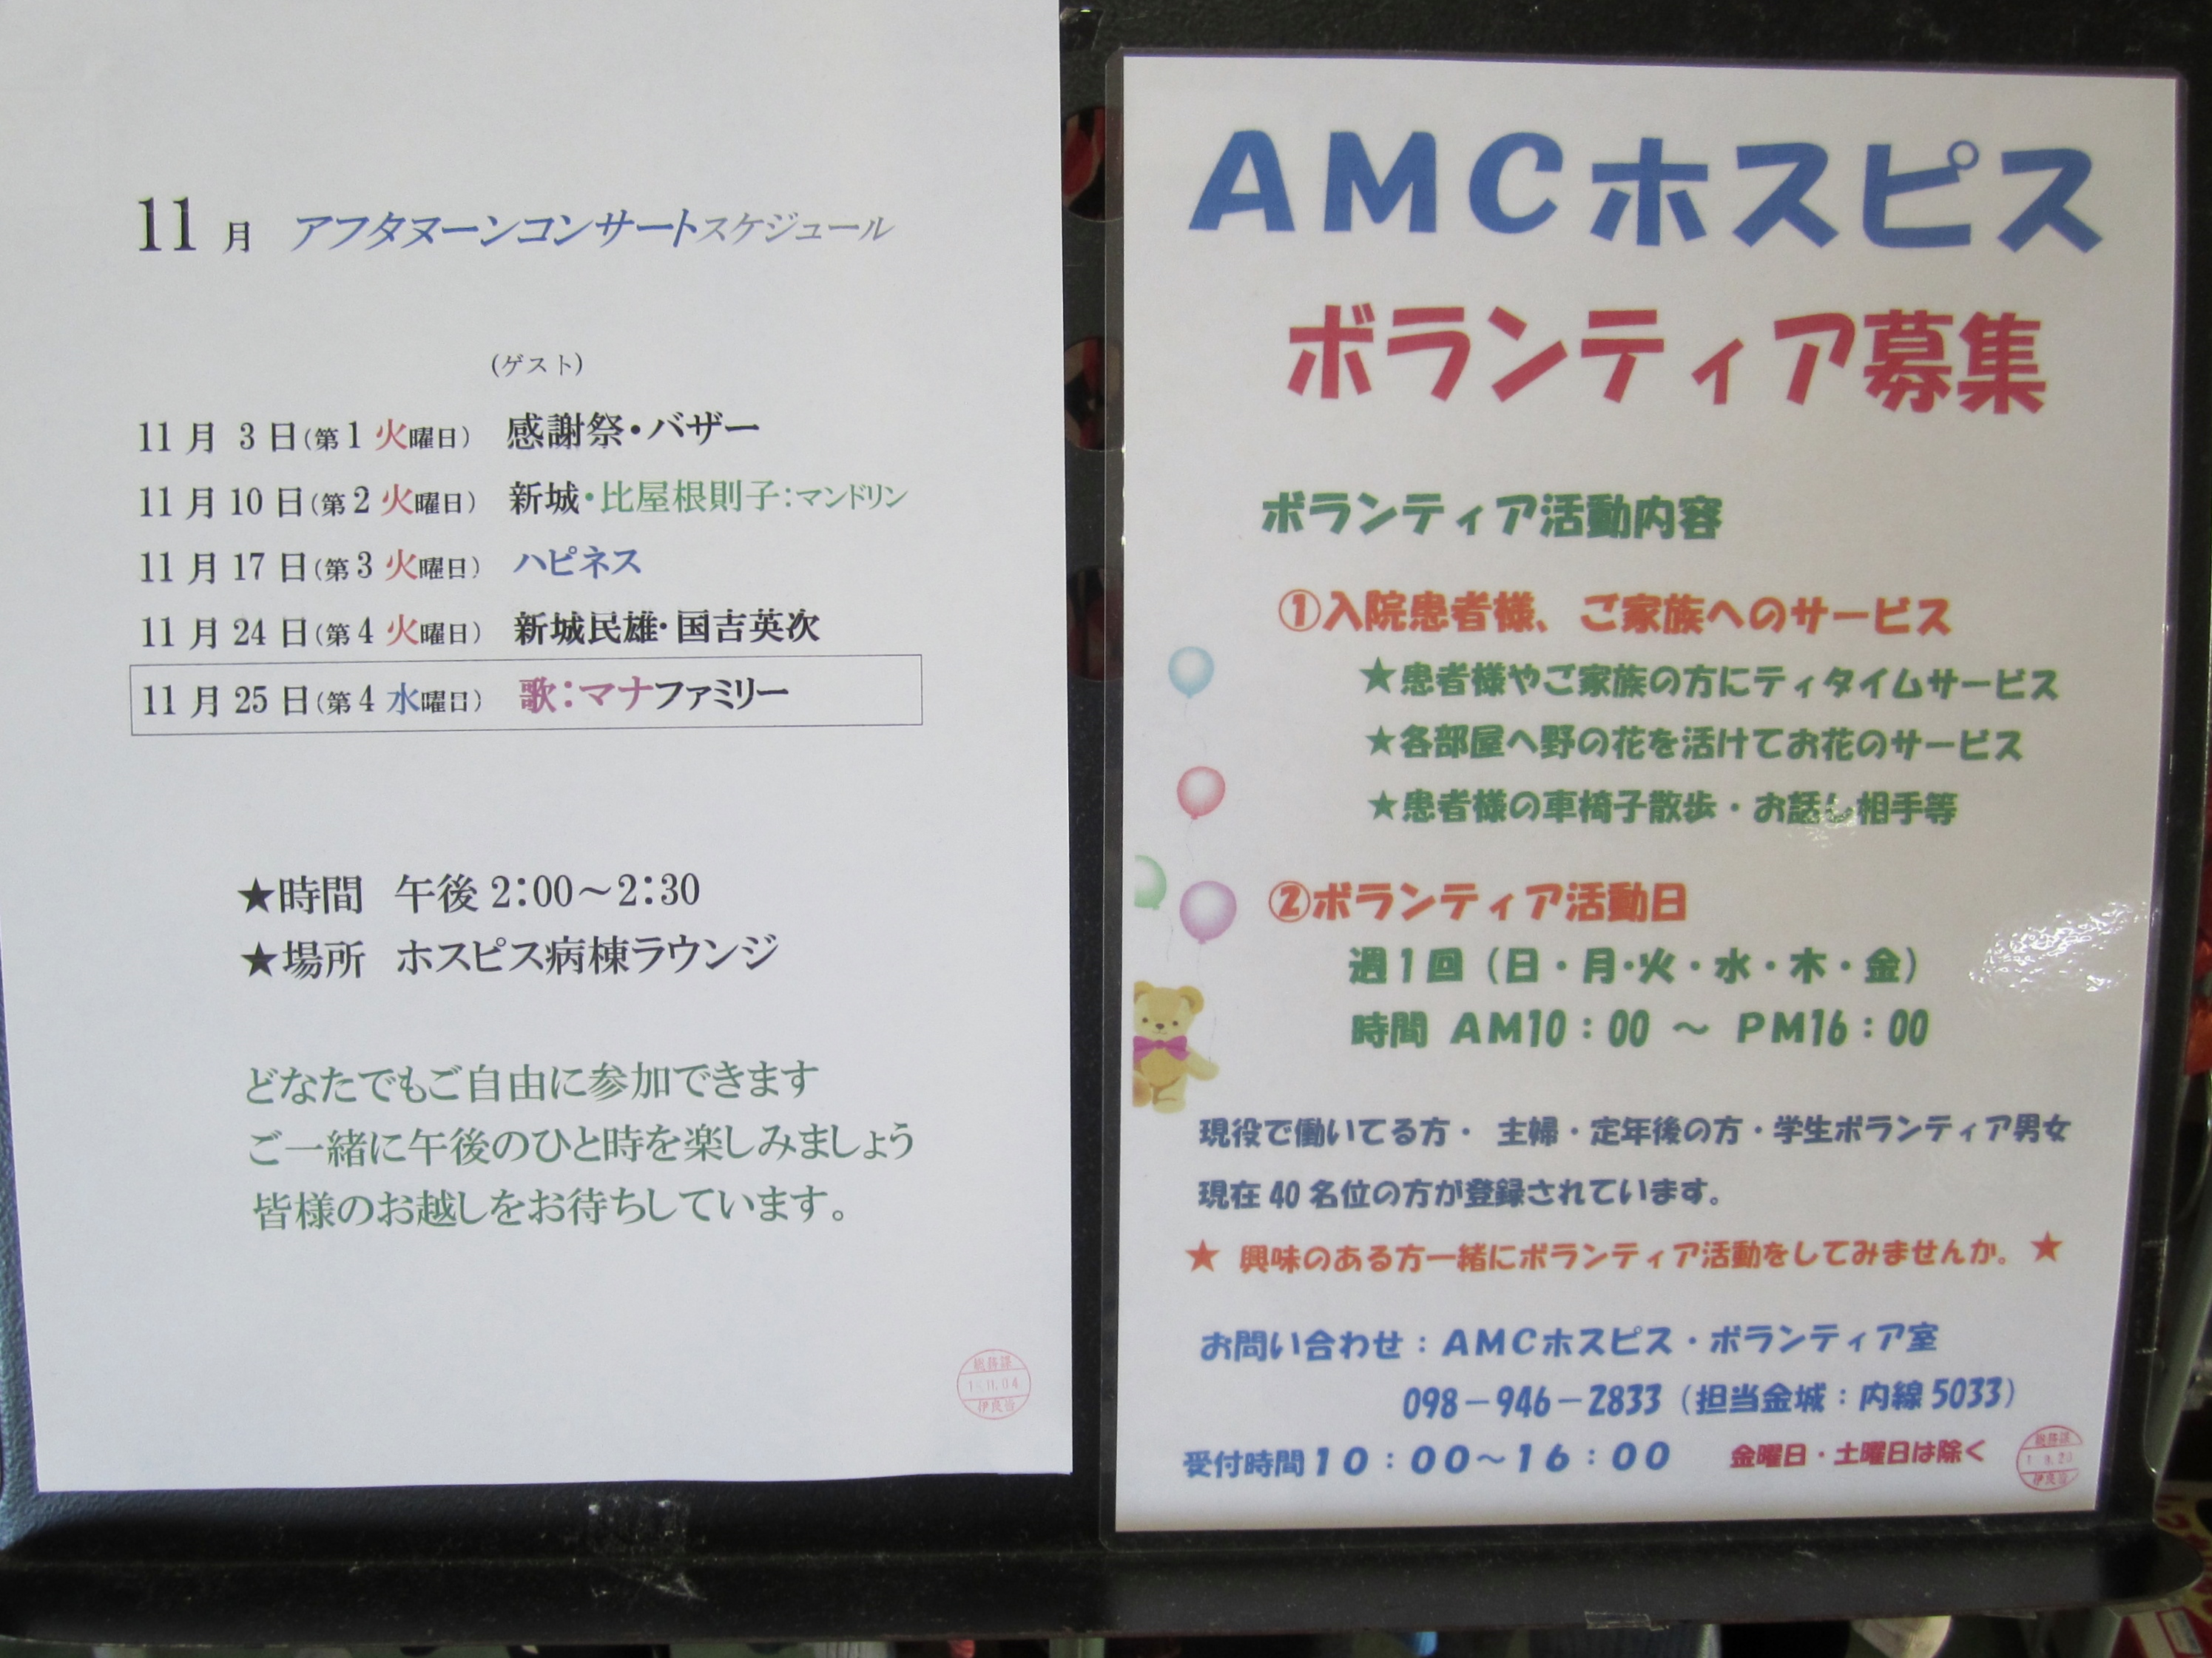 11月 アフタヌーンコンサートスケジュール
(ゲスト)
11月 3日(第1火曜日) 感謝祭・バザー
11月10日(第2火曜日) 新城・比屋根則子:マンドリン
11月17日(第3火曜日) ハピネス
11月24日(第4火曜日) 新城民雄・国吉英次
11月25日(第4水曜日) 歌:マナファミリー
★時間 午後2:00～2:30
★場所 ホスピス病棟ラウンジ
どなたでもご自由に参加できます
ご一緒に午後のひと時を楽しみましょう
皆様のお越しをお待ちしています。
総務課
伊良皆
AMCホスピス
ボランティア募集
ボランティア活動内容
①入院患者様、ご家族へのサービス
★患者様やご家族の方にティタイムサービス
★各部屋へ野の花を活けてお花のサービス
★患者様の車椅子散歩・お話し相手等
②ボランティア活動日
週1回（日・月・火・水・木・金）
時間 AM10：00 ～ PM16：00
現役で働いてる方・ 主婦・定年後の方・学生ボランティア男女
現在40名位の方が登録されています。
★ 興味のある方一緒にボランティア活動をしてみませんか。 ★
お問い合わせ：AMCホスピス・ボランティア室
098－946－2833（担当金城：内線5033）
受付時間10：00～16：00 金曜日・土曜日は除く
総務課